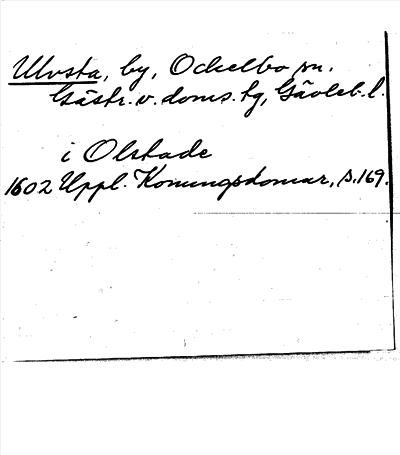 Ulvsta, by, Ockelbo sn.
Gästr. v. doms. tg, Gävleb. l.
i Olstade
1602 Uppl. Konungsdomar, s. 169.